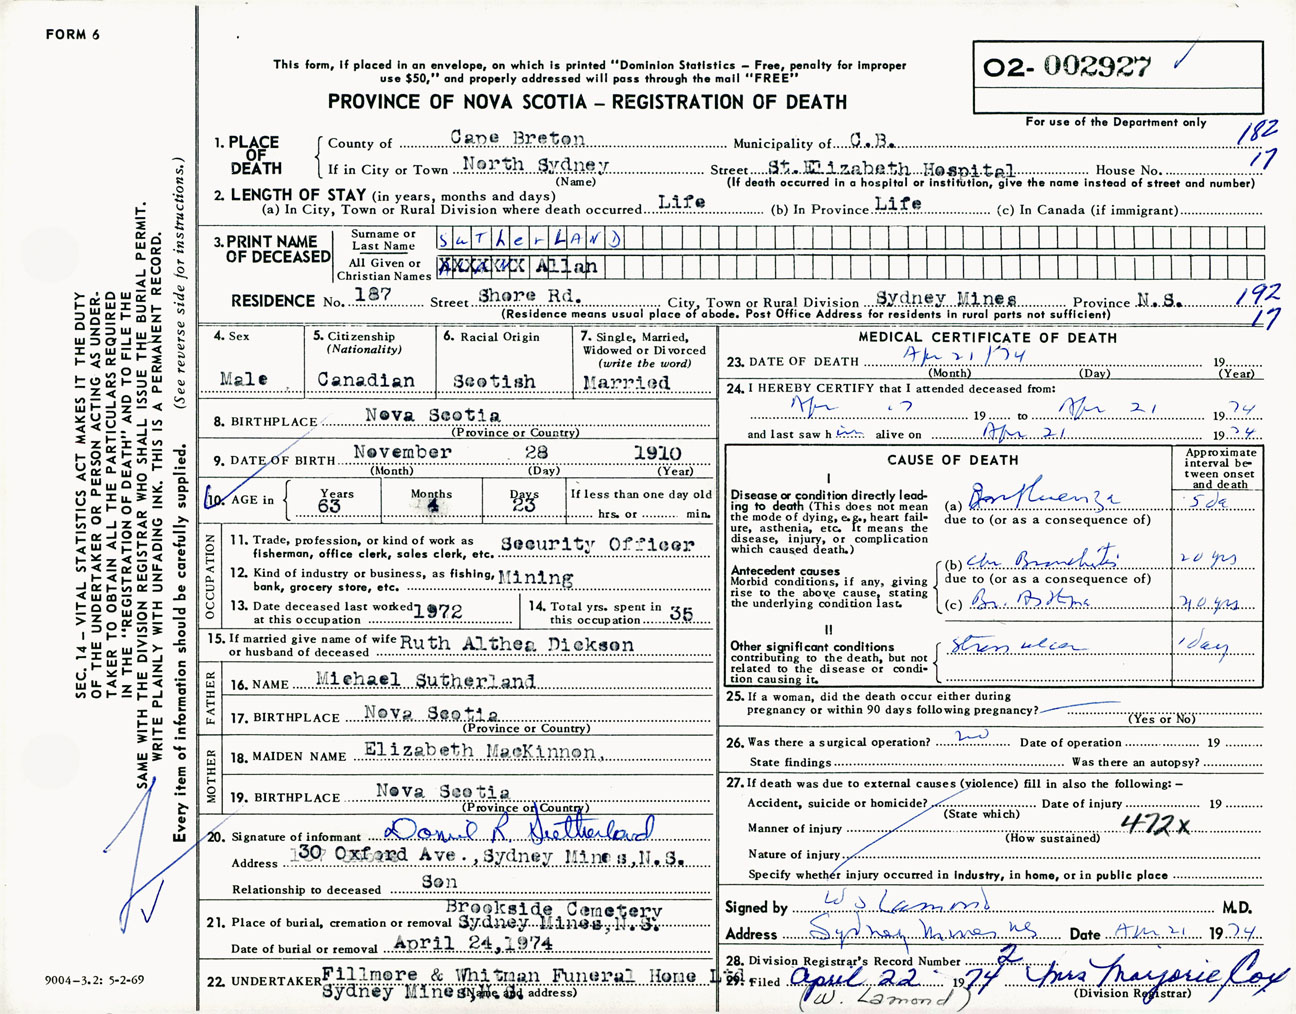 FORM 6
This form, if placed in an envelope, on which is printed "Dominion Statistics – Free, penalty for improper
use $50," and properly addressed will pass through the mail "FREE"
PROVINCE OF NOVA SCOTIA – REGISTRATION OF DEATH
02- 002927
For use of the Department only
182
17
1. PLACE OF DEATH
County of Cape Breton Municipality of C.B.
If in City or Town North Sydney Street St.Elizabeth Hospital House No.
(Name) (If death occurred in a hospital or institution, give the name instead of street and number)
2. LENGTH OF STAY (in years, months and days)
(a) In City, Town or Rural Division where death occurred Life (b) In Province Life (c) In Canada (if immigrant)
3. PRINT NAME OF DECEASED
Surname or Last Name SuTherLAND
All Given or Christian Names XXXXXX Allan
RESIDENCE No. 187 Street Shore Rd. City, Town or Rural Division Sydney Mines Province N.S.
(Residence means usual place of abode. Post Office Address for residents in rural parts not sufficient)
192
17
4. Sex
Male
5. Citizenship
(Nationality)
Canadian
6. Racial Origin
Scotish
7. Single, Married,
Widowed or Divorced
(write the word)
Married
8. BIRTHPLACE Nova Scotia
(Province or Country)
9. DATE OF BIRTH November 28 1910
(Month) (Day) (Year)
10. AGE in
Years 63
Months 4
Days 23
If less than one day old
hrs. or min.
OCCUPATION
11. Trade, profession, or kind of work as
fisherman, office clerk, sales clerk, etc. Security Officer
12. Kind of industry or business, as fishing,
bank, grocery store, etc. Mining
13. Date deceased last worked
at this occupation 1972
14. Total yrs. spent in
this occupation 35
15. If married give name of wife
or husband of deceased Ruth Althea Dickson
FATHER
16. NAME Michael Sutherland
17. BIRTHPLACE Nova Scotia
(Province or Country)
MOTHER
18. MAIDEN NAME Elizabeth MacKinnon,
19. BIRTHPLACE Nova Scotia
(Province or Country)
20. Signature of informant R. Sutherland
Address 130 Oxford Ave.,Sydney Mines,N.S.
Relationship to deceased Son
21. Place of burial, cremation or removal Brookside Cemetery
Sydney Mines,N.S.
Date of burial or removal April 24,1974
22. UNDERTAKER Fillmore & Whitman Funeral Home Ltd
Sydney Mines,N.S.
(Name and address)
MEDICAL CERTIFICATE OF DEATH
23. DATE OF DEATH Apr 21/74 19
(Month) (Day) (Year)
24. I HEREBY CERTIFY that I attended deceased from:
Apr 17 19 to Apr 21 1974
and last saw him alive on Apr 21 1974
CAUSE OF DEATH
Approximate
interval be-
tween onset
and death
I
Disease or condition directly lead-
ing to death (This does not mean
the mode of dying, e.g., heart fail-
ure, asthenia, etc. It means the
disease, injury, or complication
which caused death.)
(a) 5 da
due to (or as a consequence of)
Antecedent causes
Morbid conditions, if any, giving
rise to the above cause, stating
the underlying condition last.
(b) Chr Bronchitis 20 yrs
due to (or as a consequence of)
(c) Br. Asthma 20 yrs
II
Other significant conditions
contributing to the death, but not
related to the disease or condi-
tion causing it.
Stress ulcer 1 day
25. If a woman, did the death occur either during
pregnancy or within 90 days following pregnancy?
(Yes or No)
26. Was there a surgical operation? no Date of operation 19
State findings Was there an autopsy?
27. If death was due to external causes (violence) fill in also the following: –
Accident, suicide or homicide? Date of injury 19
(State which)
Manner of injury 472x
(How sustained)
Nature of injury
Specify whether injury occurred in Industry, in home, or in public place
Signed by W J Lamond M.D.
Address Sydney Mines NS Date Apr 21 1974
28. Division Registrar's Record Number 2
29. Filed April 22 1974 Mrs Marjorie Cox
(Division Registrar)
(W. Lamond)
SEC. 14 – VITAL STATISTICS ACT MAKES IT THE DUTY
OF THE UNDERTAKER OR PERSON ACTING AS UNDER-
TAKER TO OBTAIN ALL THE PARTICULARS REQUIRED
IN THE "REGISTRATION OF DEATH" AND TO FILE THE
SAME WITH THE DIVISION REGISTRAR WHO SHALL ISSUE THE BURIAL PERMIT.
WRITE PLAINLY WITH UNFADING INK. THIS IS A PERMANENT RECORD.
Every item of Information should be carefully supplied. (See reverse side for instructions.)
9004–3.2: 5-2-69